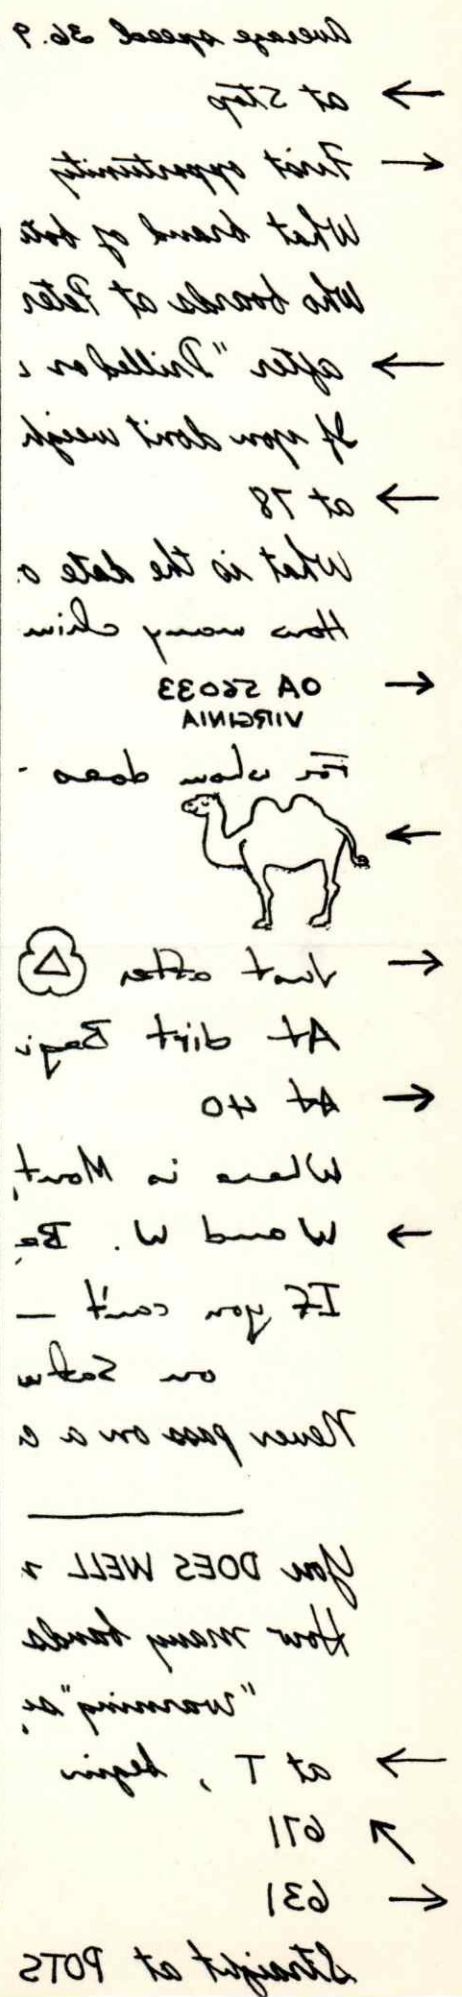 Average speed 36.9
at Stop
First opportunity
What brand of
Who boards at Peter
after "Drilled on
If you don't weigh
at 78
What is the date o
How many chim
OA 56033
VIRGINIA
For whom does
Just after
At dirt Begi
At 40
Where is Mont
W and W. Be
If you can't —
on Satu
Never pass on a c
You DOES WELL
How many bands
"warning" si
at T, begin
671
631
Straight at POTS